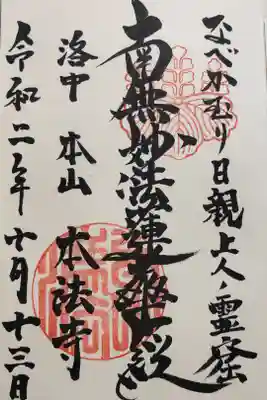 なべかむり日親上人ノ霊窟
南無妙法蓮華経
洛中 本山 本法寺
令和二年十月十三日